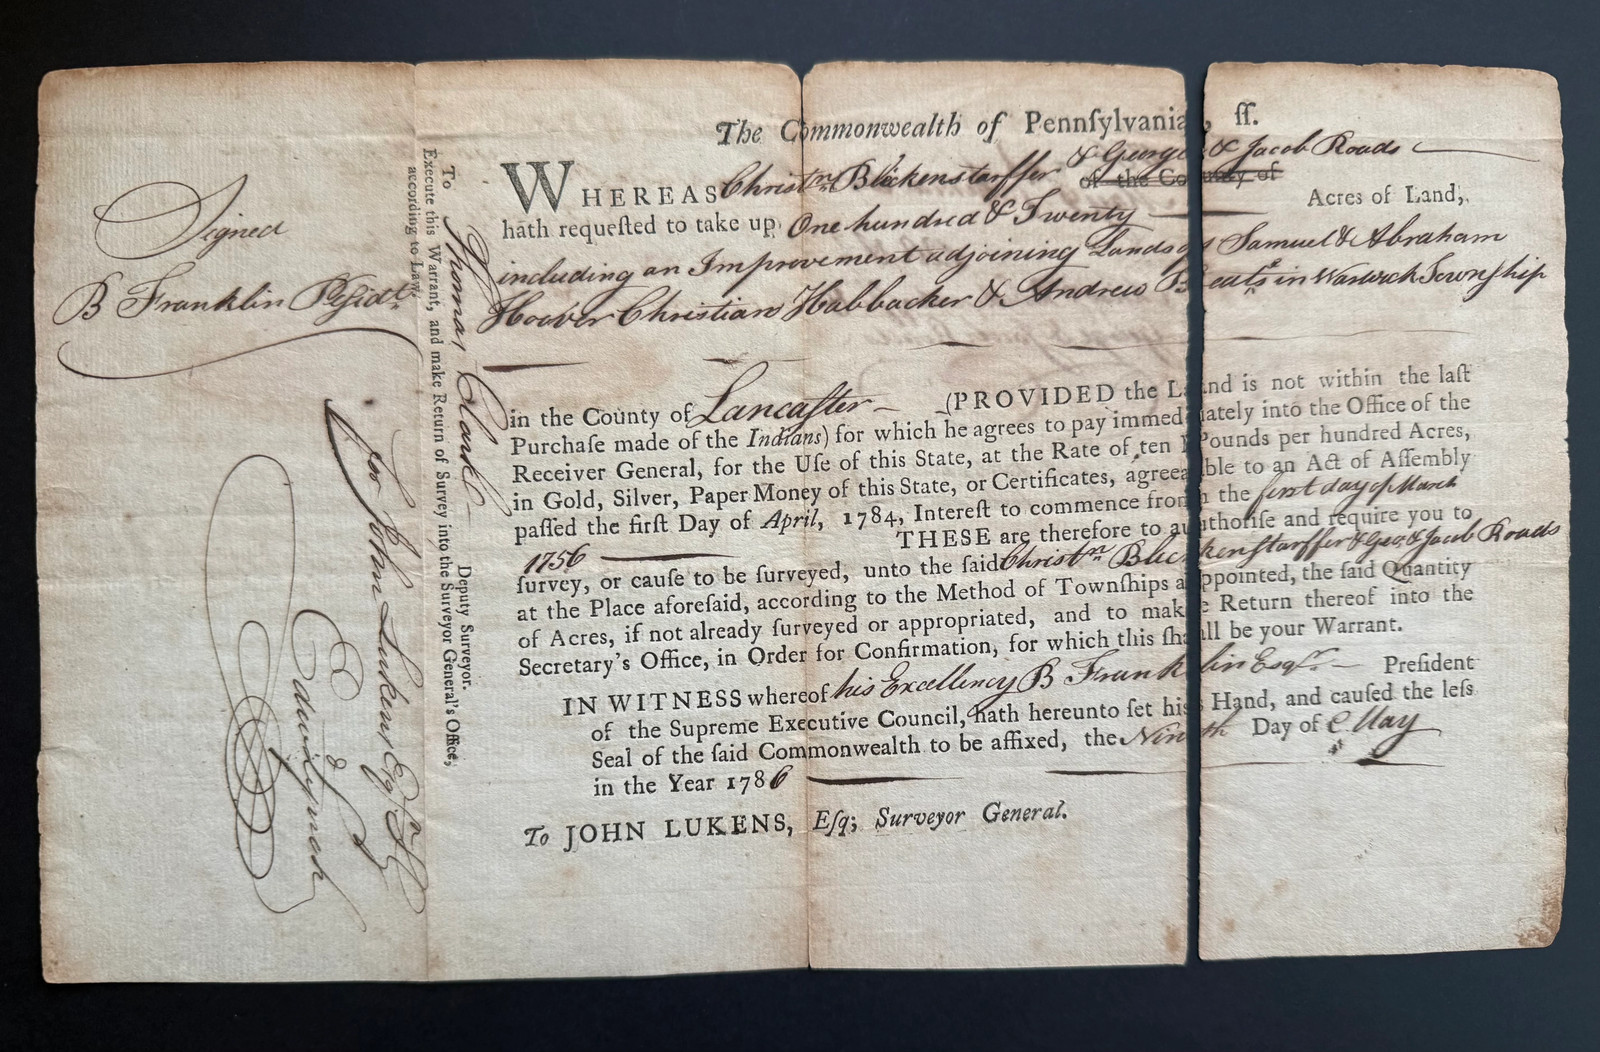 The Commonwealth of Pennſylvania, ſſ.
& George & Jacob Roads
WHEREAS Christn. Bleckenstarffer of the County of
hath requeſted to take up One hundred & Twenty Acres of Land,
including an Improvement adjoining Lands of Samuel & Abraham
Hoover Christian Habbacker & Andrew in Warwick Township
in the County of Lancaſter (PROVIDED the Land is not within the laſt
Purchaſe made of the Indians) for which he agrees to pay immediately into the Office of the
Receiver General, for the Uſe of this State, at the Rate of ten Pounds per hundred Acres,
in Gold, Silver, Paper Money of this State, or Certificates, agreeable to an Act of Aſſembly
paſſed the firſt Day of April, 1784, Intereſt to commence from the first day of March
1756 THESE are therefore to authoriſe and require you to
ſurvey, or cauſe to be ſurveyed, unto the ſaid Christn. Bleckenſtarffer & Geo. & Jacob Roads
at the Place aforeſaid, according to the Method of Townſhips appointed, the ſaid Quantity
of Acres, if not already ſurveyed or appropriated, and to make Return thereof into the
Secretary's Office, in Order for Confirmation, for which this ſhall be your Warrant.
IN WITNESS whereof his Excellency B Franklin Esqr. Preſident
of the Supreme Executive Council, hath hereunto ſet his Hand, and cauſed the leſs
Seal of the ſaid Commonwealth to be affixed, the Ninth Day of May
in the Year 1786
To JOHN LUKENS, Eſq; Surveyor General.
To Thomas Clark Deputy Surveyor.
Execute this Warrant, and make Return of Survey into the Surveyor General's Office,
according to Law.
Signed
B Franklin Preſidt.
for John Lukens Eſqr S G
Edwd Lynch